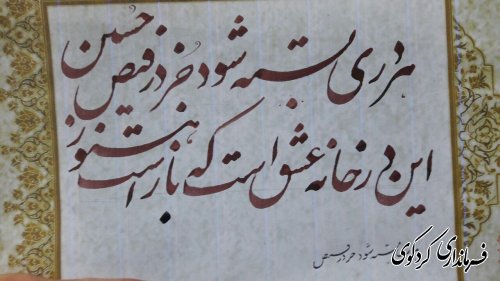 هر دری بسته شود جز در فیض حسین
این در خانه عشق است که باز است هنوز
بسته شود جز در فیض
فرمانداری کردکوی